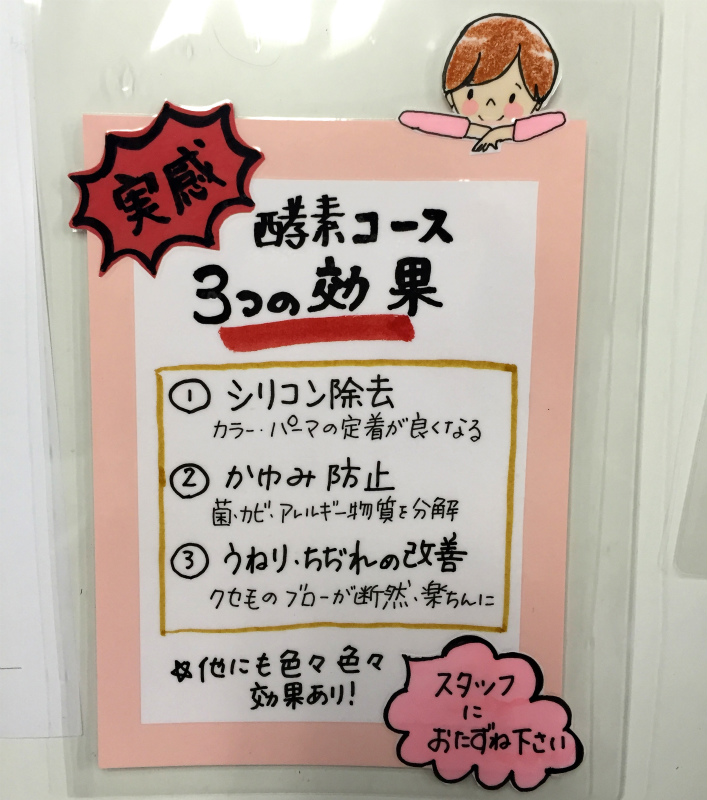 実感
酵素コース
3つの効果
① シリコン除去
カラー・パーマの定着が良くなる
② かゆみ防止
菌・カビ・アレルギー物質を分解
③ うねり・ちぢれの改善
クセ毛のブローが断然・楽ちんに
☆他にも色々色々
効果あり!
スタッフ
に
おたずね下さい